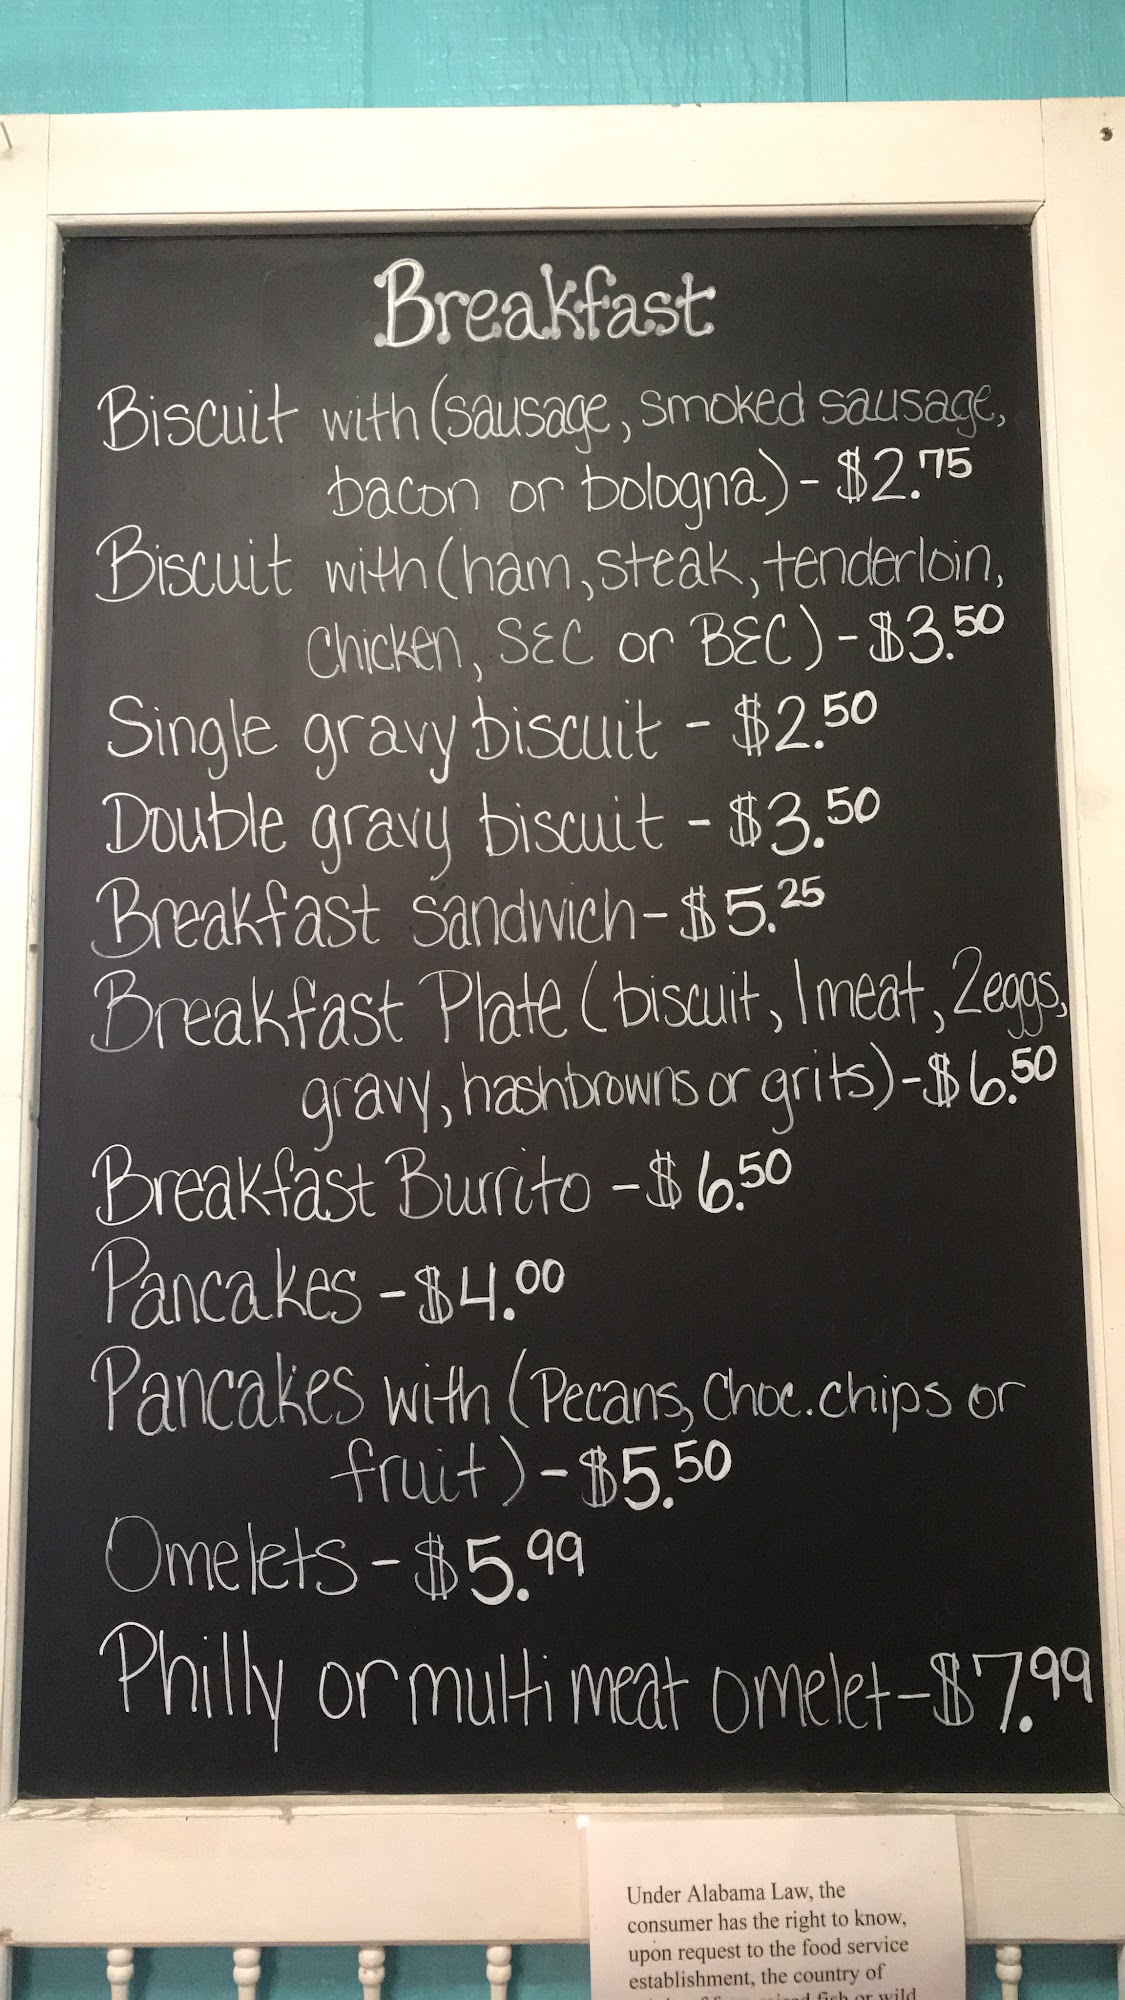 Breakfast
Biscuit with (sausage, smoked sausage,
bacon or bologna) - $2.75
Biscuit with (ham, steak, tenderloin,
Chicken, S&C or B&C) - $3.50
Single gravy biscuit - $2.50
Double gravy biscuit - $3.50
Breakfast sandwich - $5.25
Breakfast Plate (biscuit, 1 meat, 2 eggs,
gravy, hashbrowns or grits) - $6.50
Breakfast Burrito - $6.50
Pancakes - $4.00
Pancakes with (Pecans, Choc. chips or
fruit) - $5.50
Omelets - $5.99
Philly or multi meat omelet - $7.99
Under Alabama Law, the
consumer has the right to know,
upon request to the food service
establishment, the country of
fish or wild